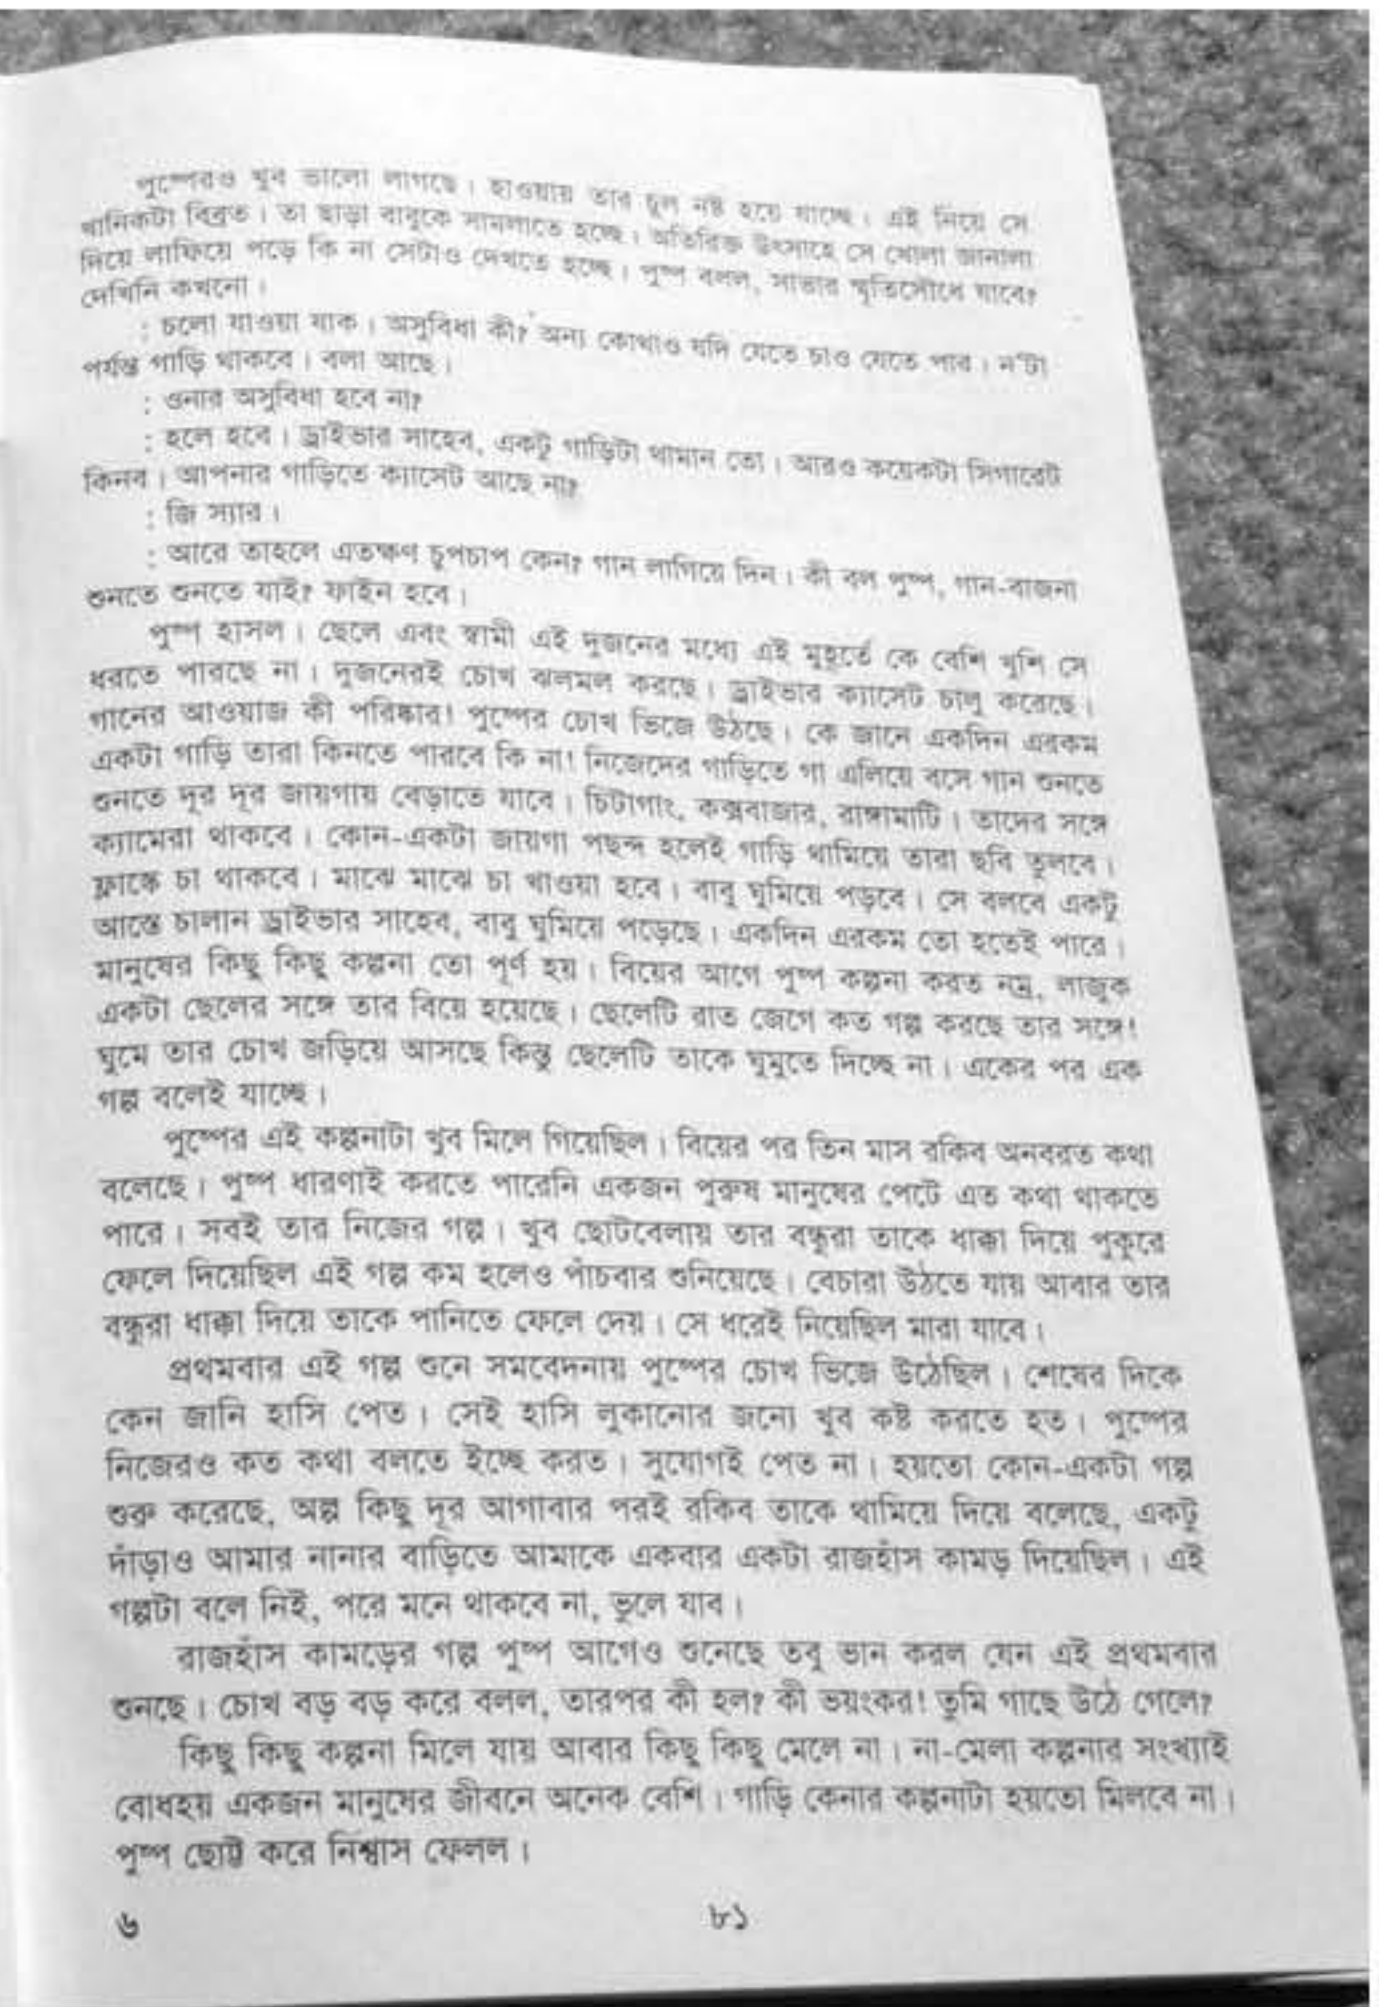 পুষ্পেরও খুব ভালো লাগছে। হাওয়ায় তার চুল নষ্ট হয়ে যাচ্ছে। এই নিয়ে সে
খানিকটা বিব্রত। তা ছাড়া বাবুকে সামলাতে হচ্ছে। অতিরিক্ত উৎসাহে সে খোলা জানালা
দিয়ে লাফিয়ে পড়ে কি না সেটাও দেখতে হচ্ছে। পুষ্প বলল, সাভার স্মৃতিসৌধে যাবে?
দেখিনি কখনো।
: চলো যাওয়া যাক। অসুবিধা কী? অন্য কোথাও যদি যেতে চাও যেতে পার। ন'টা
পর্যন্ত গাড়ি থাকবে। বলা আছে।
: ওনার অসুবিধা হবে না?
: হলে হবে। ড্রাইভার সাহেব, একটু গাড়িটা থামান তো। আরও কয়েকটা সিগারেট
কিনব। আপনার গাড়িতে ক্যাসেট আছে না?
: জি স্যার।
: আরে তাহলে এতক্ষণ চুপচাপ কেন? গান লাগিয়ে দিন। কী বল পুষ্প, গান-বাজনা
শুনতে শুনতে যাই? ফাইন হবে।
পুষ্প হাসল। ছেলে এবং স্বামী এই দুজনের মধ্যে এই মুহূর্তে কে বেশি খুশি সে
ধরতে পারছে না। দুজনেরই চোখ ঝলমল করছে। ড্রাইভার ক্যাসেট চালু করেছে।
গানের আওয়াজ কী পরিষ্কার! পুষ্পের চোখ ভিজে উঠছে। কে জানে একদিন এরকম
একটা গাড়ি তারা কিনতে পারবে কি না! নিজেদের গাড়িতে গা এলিয়ে বসে গান শুনতে
শুনতে দূর দূর জায়গায় বেড়াতে যাবে। চিটাগাং, কক্সবাজার, রাঙ্গামাটি। তাদের সঙ্গে
ক্যামেরা থাকবে। কোন-একটা জায়গা পছন্দ হলেই গাড়ি থামিয়ে তারা ছবি তুলবে।
ফ্লাস্কে চা থাকবে। মাঝে মাঝে চা খাওয়া হবে। বাবু ঘুমিয়ে পড়বে। সে বলবে একটু
আস্তে চালান ড্রাইভার সাহেব, বাবু ঘুমিয়ে পড়েছে। একদিন এরকম তো হতেই পারে।
মানুষের কিছু কিছু কল্পনা তো পূর্ণ হয়। বিয়ের আগে পুষ্প কল্পনা করত নম্র, লাজুক
একটা ছেলের সঙ্গে তার বিয়ে হয়েছে। ছেলেটি রাত জেগে কত গল্প করছে তার সঙ্গে!
ঘুমে তার চোখ জড়িয়ে আসছে কিন্তু ছেলেটি তাকে ঘুমুতে দিচ্ছে না। একের পর এক
গল্প বলেই যাচ্ছে।
পুষ্পের এই কল্পনাটা খুব মিলে গিয়েছিল। বিয়ের পর তিন মাস রকিব অনবরত কথা
বলেছে। পুষ্প ধারণাই করতে পারেনি একজন পুরুষ মানুষের পেটে এত কথা থাকতে
পারে। সবই তার নিজের গল্প। খুব ছোটবেলায় তার বন্ধুরা তাকে ধাক্কা দিয়ে পুকুরে
ফেলে দিয়েছিল এই গল্প কম হলেও পাঁচবার শুনিয়েছে। বেচারা উঠতে যায় আবার তার
বন্ধুরা ধাক্কা দিয়ে তাকে পানিতে ফেলে দেয়। সে ধরেই নিয়েছিল মারা যাবে।
প্রথমবার এই গল্প শুনে সমবেদনায় পুষ্পের চোখ ভিজে উঠেছিল। শেষের দিকে
কেন জানি হাসি পেত। সেই হাসি লুকানোর জন্যে খুব কষ্ট করতে হত। পুষ্পের
নিজেরও কত কথা বলতে ইচ্ছে করত। সুযোগই পেত না। হয়তো কোন-একটা গল্প
শুরু করেছে, অল্প কিছু দূর আগাবার পরই রকিব তাকে থামিয়ে দিয়ে বলেছে, একটু
দাঁড়াও আমার নানার বাড়িতে আমাকে একবার একটা রাজহাঁস কামড় দিয়েছিল। এই
গল্পটা বলে নিই, পরে মনে থাকবে না, ভুলে যাব।
রাজহাঁস কামড়ের গল্প পুষ্প আগেও শুনেছে তবু ভান করল যেন এই প্রথমবার
শুনছে। চোখ বড় বড় করে বলল, তারপর কী হল? কী ভয়ংকর! তুমি গাছে উঠে গেলে?
কিছু কিছু কল্পনা মিলে যায় আবার কিছু কিছু মেলে না। না-মেলা কল্পনার সংখ্যাই
বোধহয় একজন মানুষের জীবনে অনেক বেশি। গাড়ি কেনার কল্পনাটা হয়তো মিলবে না।
পুষ্প ছোট্ট করে নিশ্বাস ফেলল।
৬
৮১